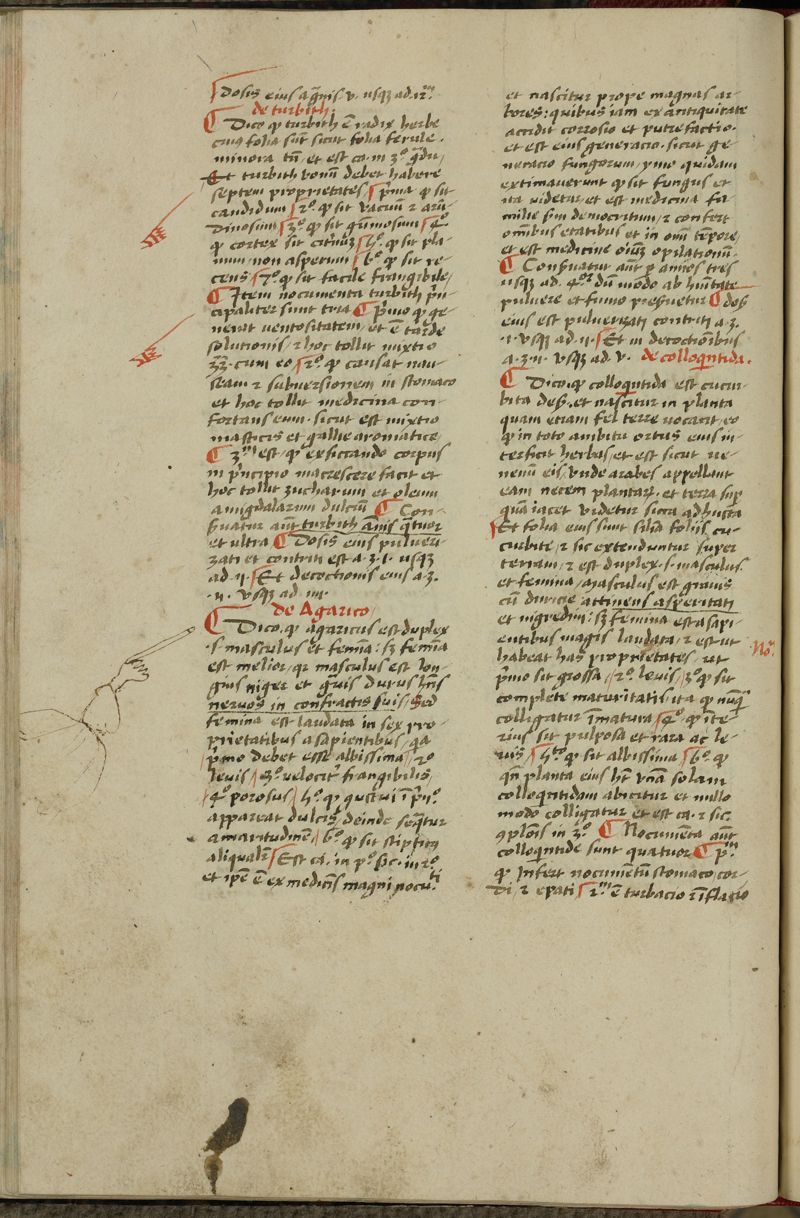 dosis eius a gnis. v. usq; ad. 12.
de turbith.
Dico ꝙ turbith ē radix herbe
cuius folia sūt sicut folia ferule.
minora tn̄, et est ca. in 3º. gdu,
Et turbith bonū debet habere
septem proprietates pr̄ma ꝙ sit
candidum 2º. ꝙ sit vacuum et
dinosum 3º. ꝙ sit gūmosum 4º.
ꝙ cortex sit 5º. ꝙ sit pla-
num non asperum 6º. ꝙ sit re-
cens 7º. ꝙ sit facile frangibile,
Item nocumenta turbith pn̄-
cipaliter sunt tria Pr̄mo ꝙ ge-
nerat ventositatem, et ē tarde
solutionis et hoc tollit mixtio
cum eo 2º. ꝙ causat nau-
seam et subversionem in stomaco
et hoc tollit medicina con-
fortans eum. sicut est mixtio
masticis et gallie aromatice
3m est. ꝙ exsiccando corpus
in pr̄ncipio macrescere facit et
hoc tollit zucharum et oleum
amigdalarum dulciū Con-
seruatur aūt turbith annis qtuor
et ultra Dosis eius pulueri-
zati et contriti est a. ʒ. i. usq;
ad. ii. Et decoctionis eius a. ʒ.
.ii. vsq; ad. iiii.
de Agarico
Dico. ꝙ agaricus est duplex
.s. masculus et femina: sʒ femina
est melior, qr masculus est lon-
gius niger et grauis durus hn̄s
neruos in confractis suis. Sed
femina est laudata in sex pro-
prietatibus a sapientibus, qa
pr̄mo debet esse albissima, 2º.
leuis 3º. velocitr frangibilis,
4º. porosus, 5º. ꝙ gustui ī pn̄º.
appareat dulcis deinde seqtur
amaritudinē, 6º. ꝙ sit stiptica
aliqualr Est ca. in pº. sic. in 2º.
et ipē ē ex medicis magni nocuti
et nascitur prope magnas ar-
bores: quibus iam ex antiquitate
accidit corrosio et putrefactio.
et est eius generacio. sicut ge-
neracio fungorum, ymo quidam
extimauerunt ꝙ sit fungus et
ita videtur et est medicina fa-
milie sm democritum, et confert
omībus etatibus et in om̄i tempore,
et est medicine oiuʒ opilationū.
Conseruatur aūt p annos tres
usq; ad. 4or dū modo ab hūitate
puluere et fumo preseruetur Dos
eius est pulverizati contriti a ʒ.
.i. vsq; ad. ii. Et in decoctionibus
a. ʒ. ii. vsq; ad. v. de colloqntida.
Dico. ꝙ colloqntida est cucur-
bita des. et nascitur in planta
quam etiam fel terre vocant, eo
ꝙ in toto ambitu ortus eius in-
terficit herbas et est sicut ve-
nenū eis, vnde arabes appellant
eam necem plantarum, et terra sup
quā iacet videtur sicut adhusta
Et folia eius sunt silia foliis cu-
curbite, et sic extenduntur super
terram, et est duplex .s. masculus
et femina, masculus est grauis
cū duricie attinens asperitati
et nigredini: sʒ femina est a sapi-
entibus magis laudata, et est ut
habeat has proprietates, ut
pr̄mo sit grossa, 2º. leuis 3º. ꝙ sit
complete maturitatis, ita ꝙ nūq
colligatur īmatura 4º. ꝙ īte-
rius sit pulposa et rara ac le-
uis, 5º. ꝙ sit albissima 6º. ꝙ
qn̄ planta eius ht vnā solam
colloqntidam abicitur et nullo
modo colligatur et est ca. et sic.
in 3º. Nocumēta aūt
colloqntide sunt quatuor Pm
ꝙ infert nocumentū stomaco, cor-
di, et epati 2m ē turbacio et īflatio
No.